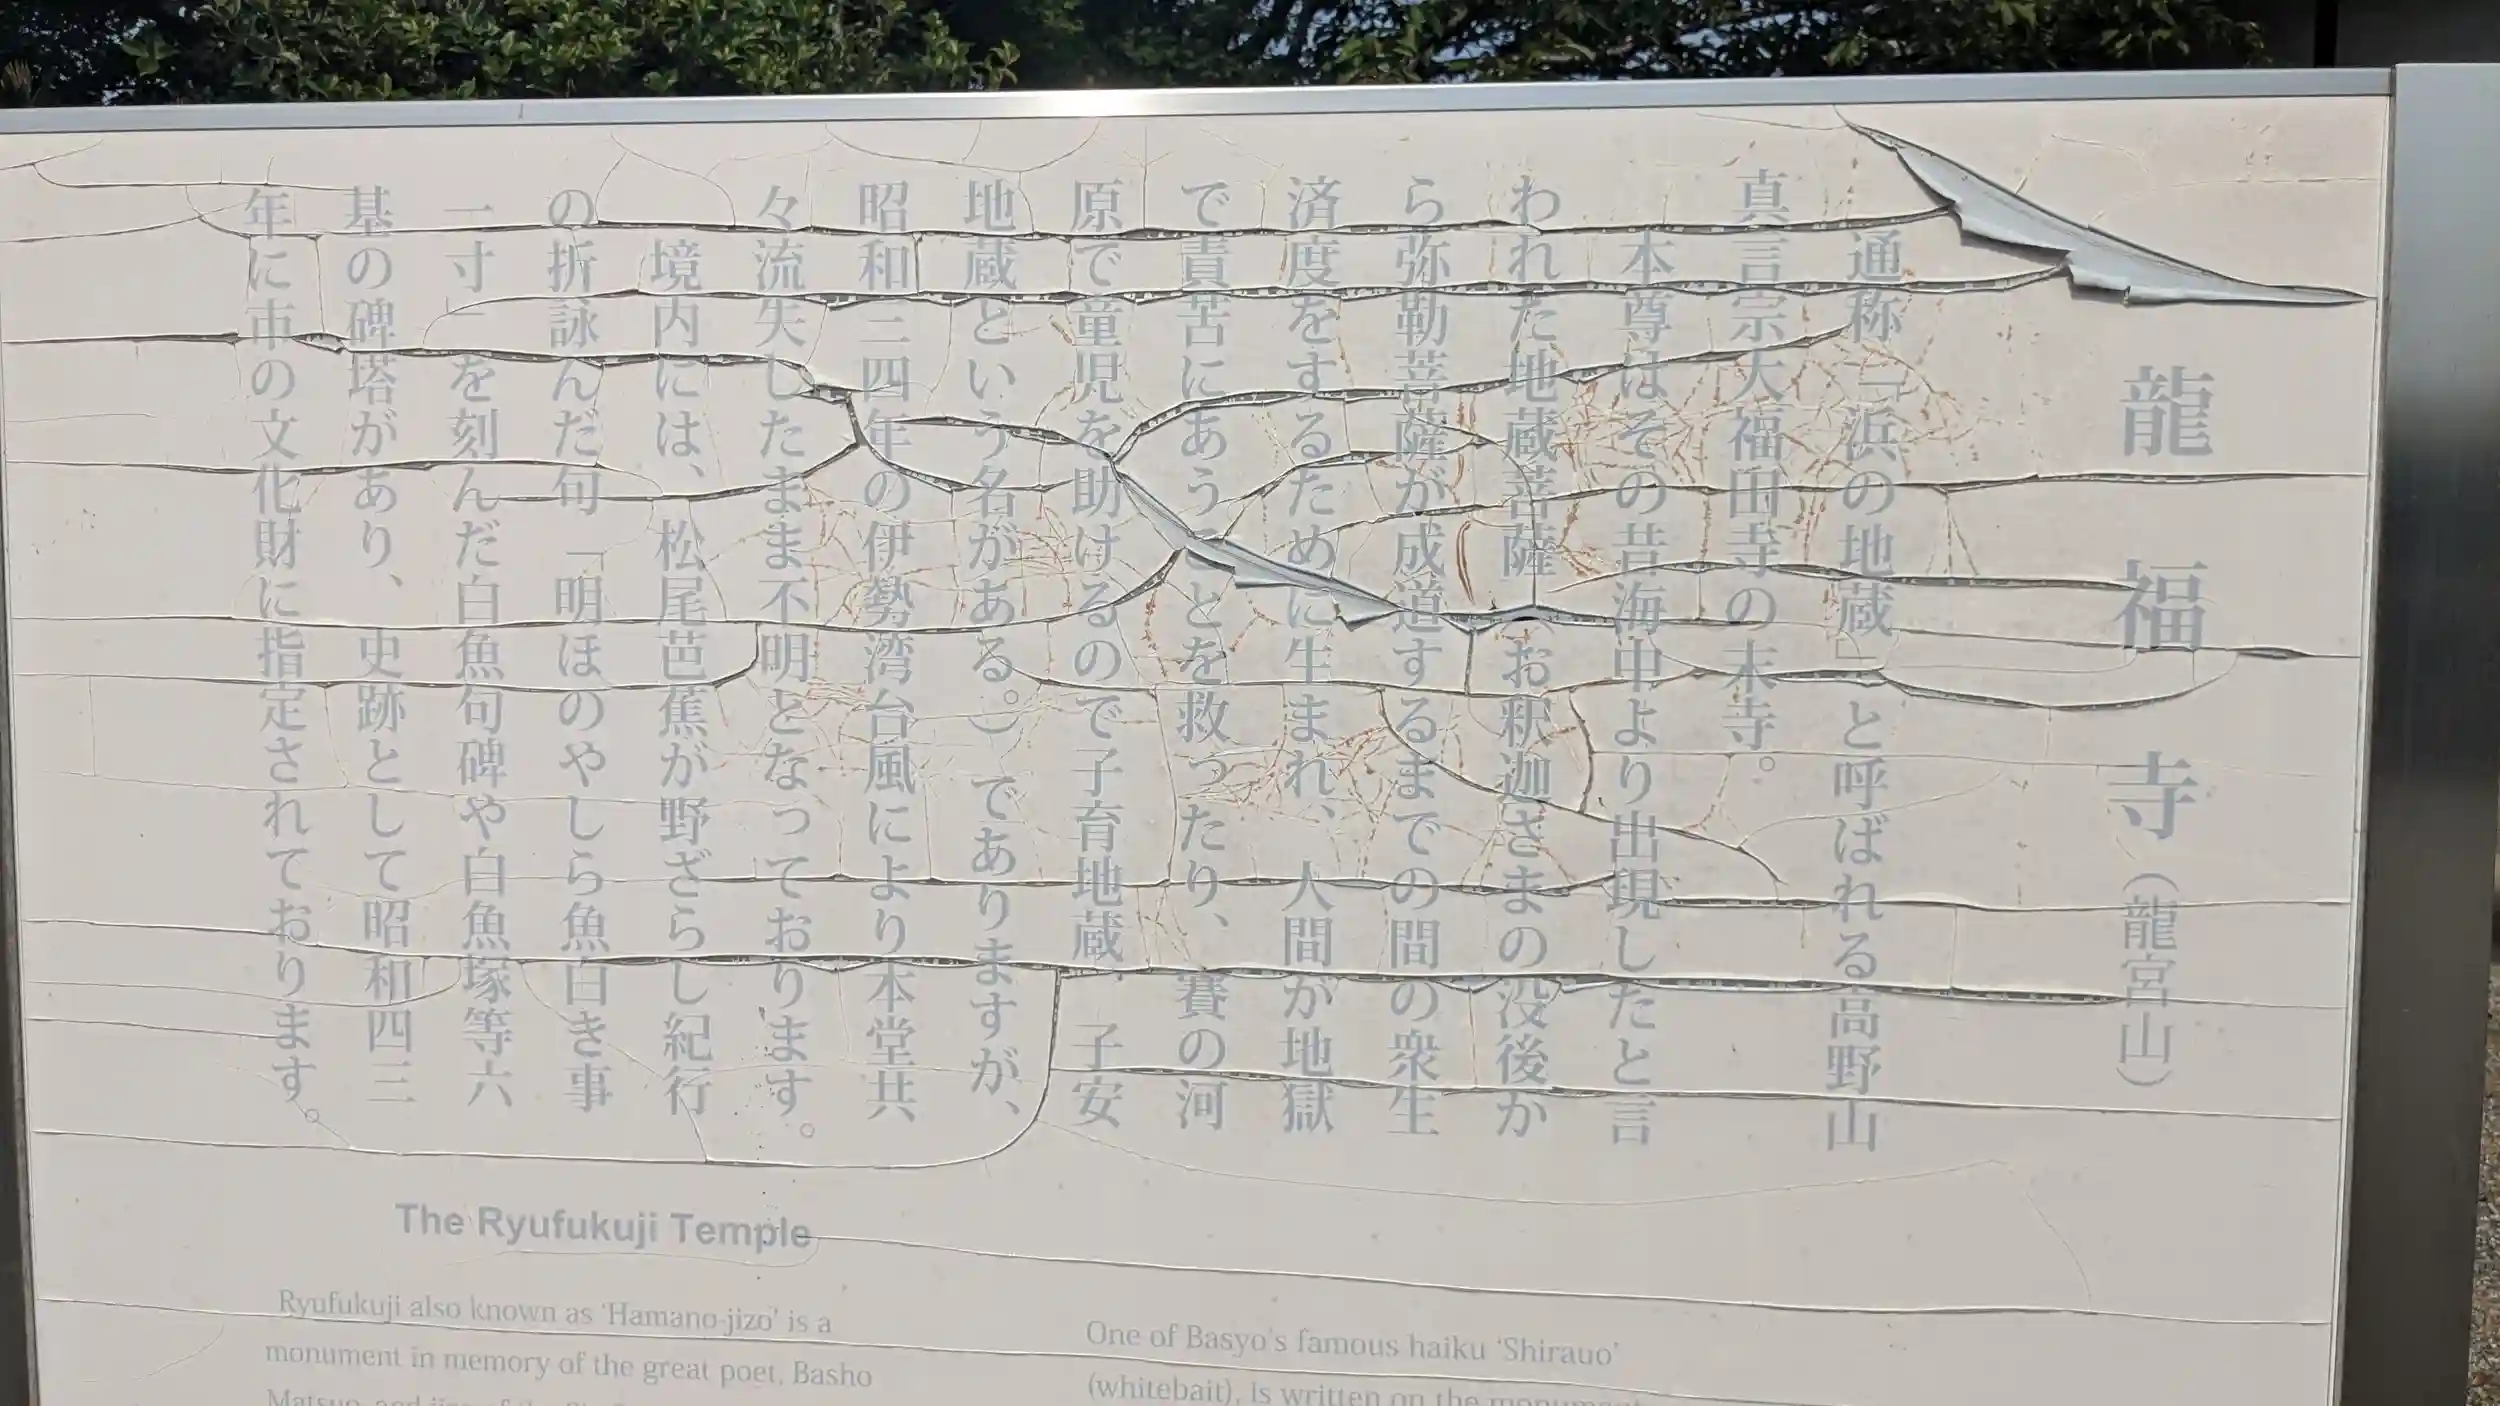 龍福寺(龍宮山)
通称「浜の地蔵」と呼ばれる高野山
真言宗大福田寺の末寺。
本尊はその昔海中より出現したと言
われた地蔵菩薩(お釈迦さまの没後か
ら弥勒菩薩が成道するまでの間の衆生
済度をするために生まれ、人間が地獄
で責苦にあうことを救ったり、賽の河
原で童児を助けるので子育地蔵、子安
地蔵という名がある。)でありますが、
昭和三四年の伊勢湾台風により本堂共
々流失したまま不明となっております。
境内には、松尾芭蕉が野ざらし紀行
の折詠んだ句「明ほのやしら魚白き事
一寸」を刻んだ白魚句碑や白魚塚等六
基の碑塔があり、史跡として昭和四三
年に市の文化財に指定されております。
The Ryufukuji Temple
Ryufukuji also known as 'Hamano-jizo' is a
monument in memory of the great poet, Basho
One of Basyo's famous haiku 'Shirauo'
(whitebait), is written on the monument